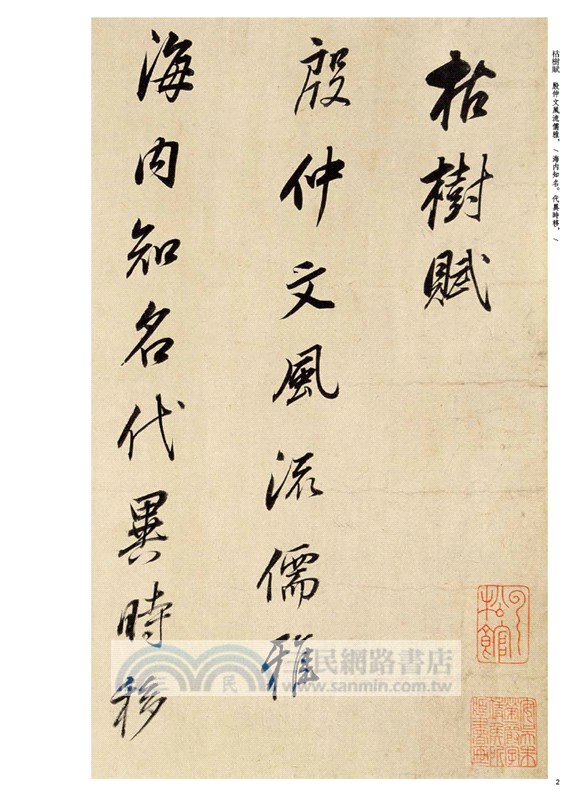 枯樹賦
殷仲文風流儒雅
海内知名代異時移
枯樹賦 殷仲文風流儒雅，/海内知名。代異時移，/
三民網路書店
三民
www.sanmin.com.tw
2